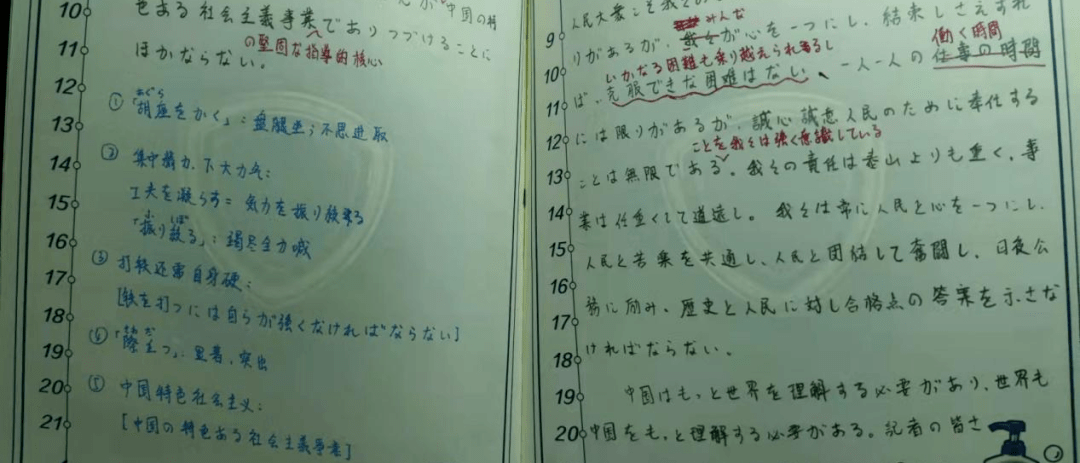 10 色ある社会主義事業でありつづけることに
の堅固な指導的核心
11 ほかならない。
12
あぐら
13 ①「胡座をかく」:盘腿坐;不思进取
14 ② 集中精力、下大力气:
15 工夫を凝らす= 気力を振り絞る
ふ しぼ
16 「振り絞る」:竭尽全力喊
17 ③ 打铁还需自身硬:
18 [鉄を打つには自らが強くなければならない]
19 ④「際立つ」:显著、突出
20 ⑤ 中国特色社会主义:
21 [中国の特色ある社会主義事業]
みんな
9 りがあるが、我々が心を一つにし、結束しさえすれ
いかなる困難も乗り越えられるし
働く時間
10 ば、克服できな困難はない、一人一人の仕事の時間
11 には限りがあるが、誠心誠意人民のために奉仕する
ことを我々は強く意識している
12 ことは無限である。我々の責任は泰山よりも重く、事
13 業は任重くして道遠し。我々は常に人民と心を一つにし、
14 人民と苦楽を共通し、人民と団結して奮闘し、日夜公
15 務に励み、歴史と人民に対し合格点の答案を示さな
16 ければならない。
17
18
19 中国はもっと世界を理解する必要があり、世界も
20 中国をもっと理解する必要がある。記者の皆さ